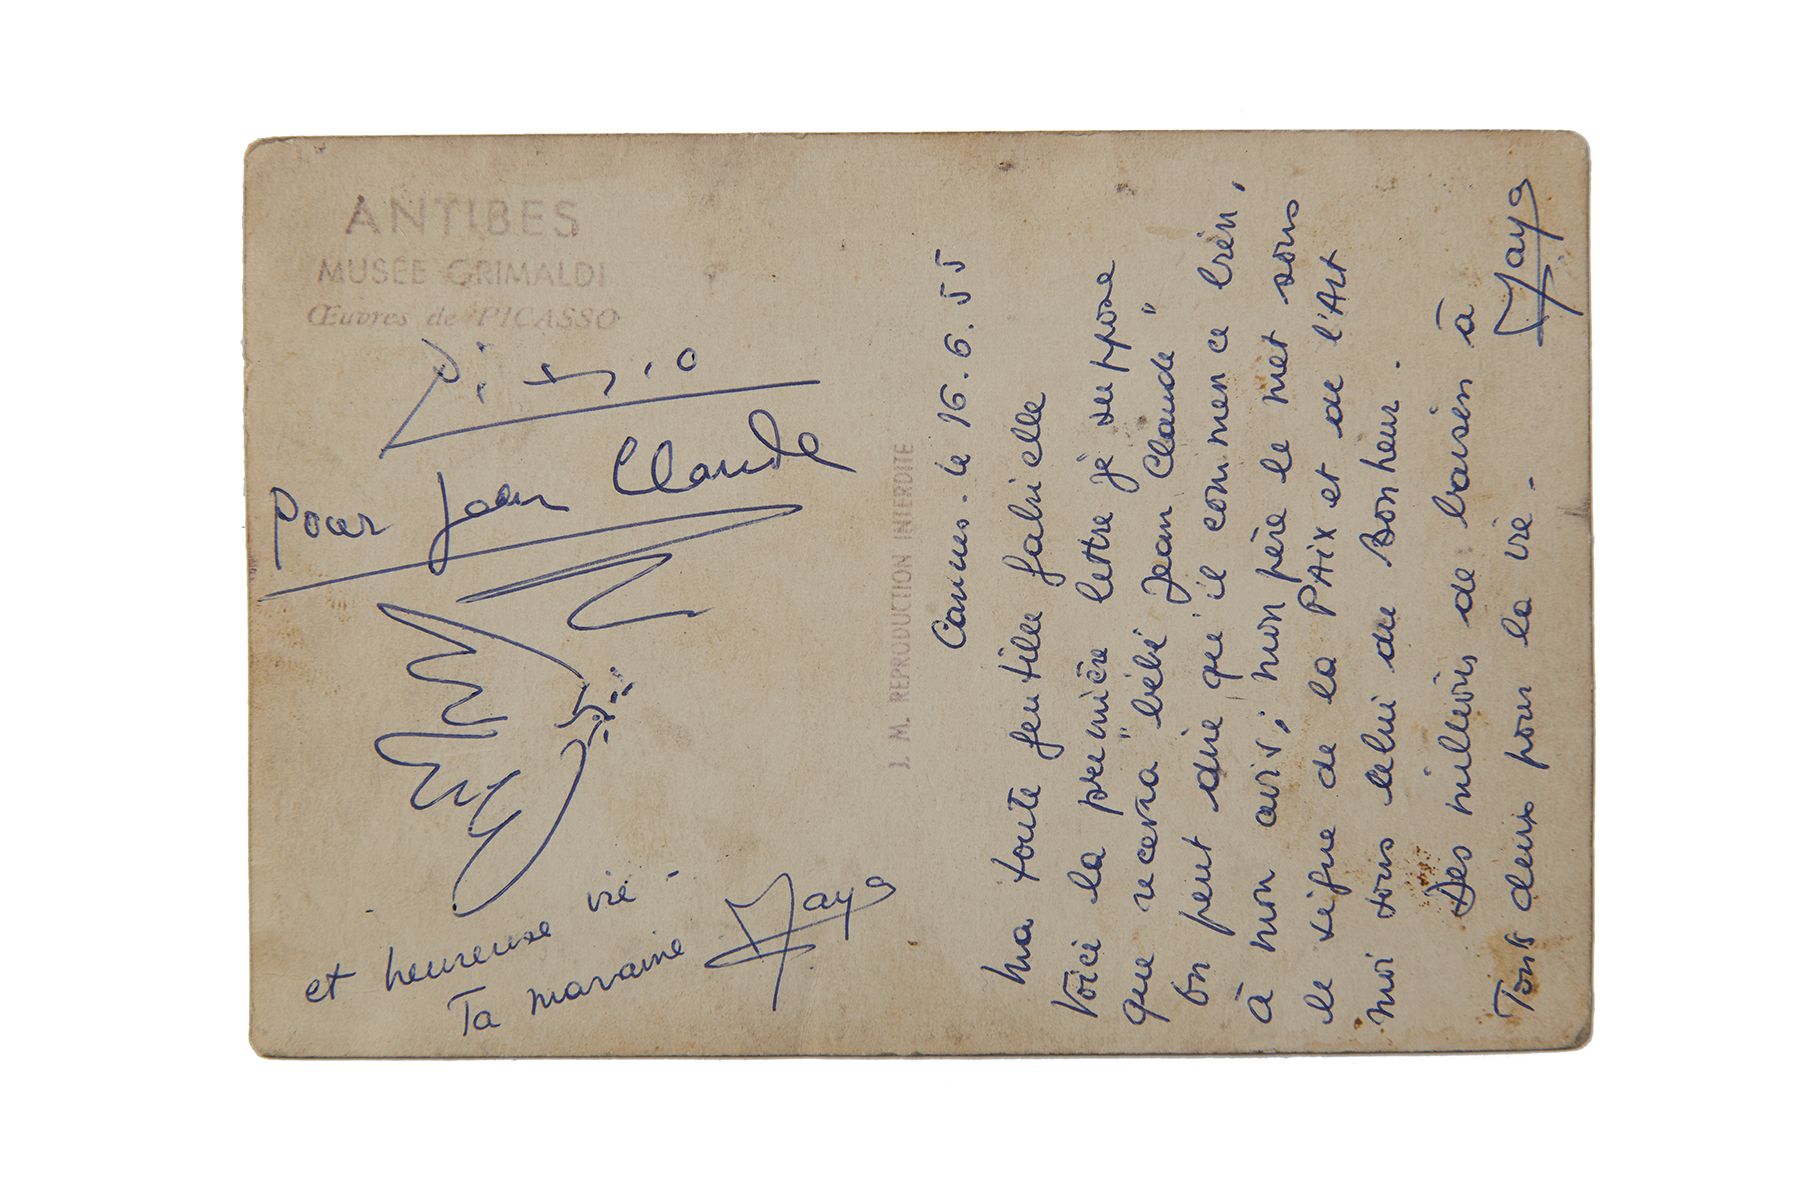 ANTIBES
MUSÉE GRIMALDI
Œuvres de PICASSO
Picasso
Pour Jean Claude
et heureuse vie -
Ta marraine Maya
J. M. REPRODUCTION INTERDITE
Cannes. le 16.6.55
Ma toute gentille Gabrielle
Voici la première lettre je suppose
que recevra "bébé Jean Claude"
On peut dire qu'il commence bien,
à mon avis; mon père le met sous
le signe de la PAix et de l'Art
moi sous celui du Bonheur.
Des millions de baisers à
Tous deux pour la vie -
Maya